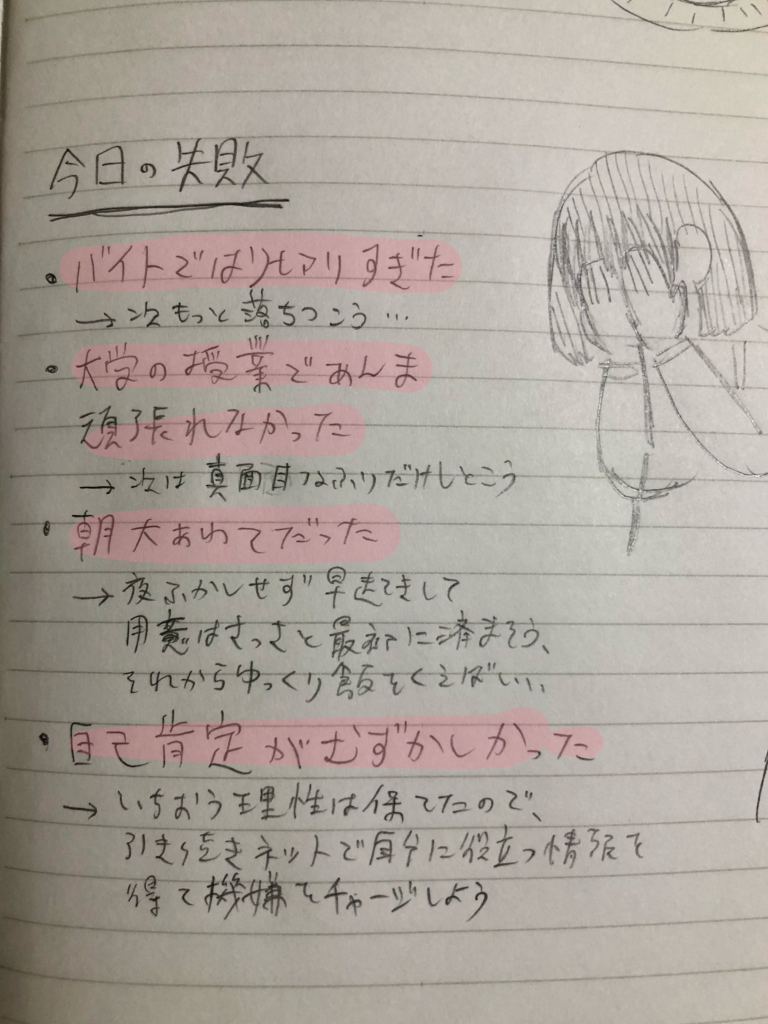 今日の失敗
・バイトではりセアリすぎた
→次もっと落ちつこう…
・大学の授業であんま
頑張れなかった
→次は真面目なふりだけしとこう
・朝大あわてだった
→夜ふかしせず早起きして
用意はさっさと最初に済まそう、
それからゆっくり飯をくえばいい、
・自己肯定がむずかしかった
→いちおう理性は保てたので、
引き続きネットで自分に役立つ情報を
得て機嫌をチャージしよう